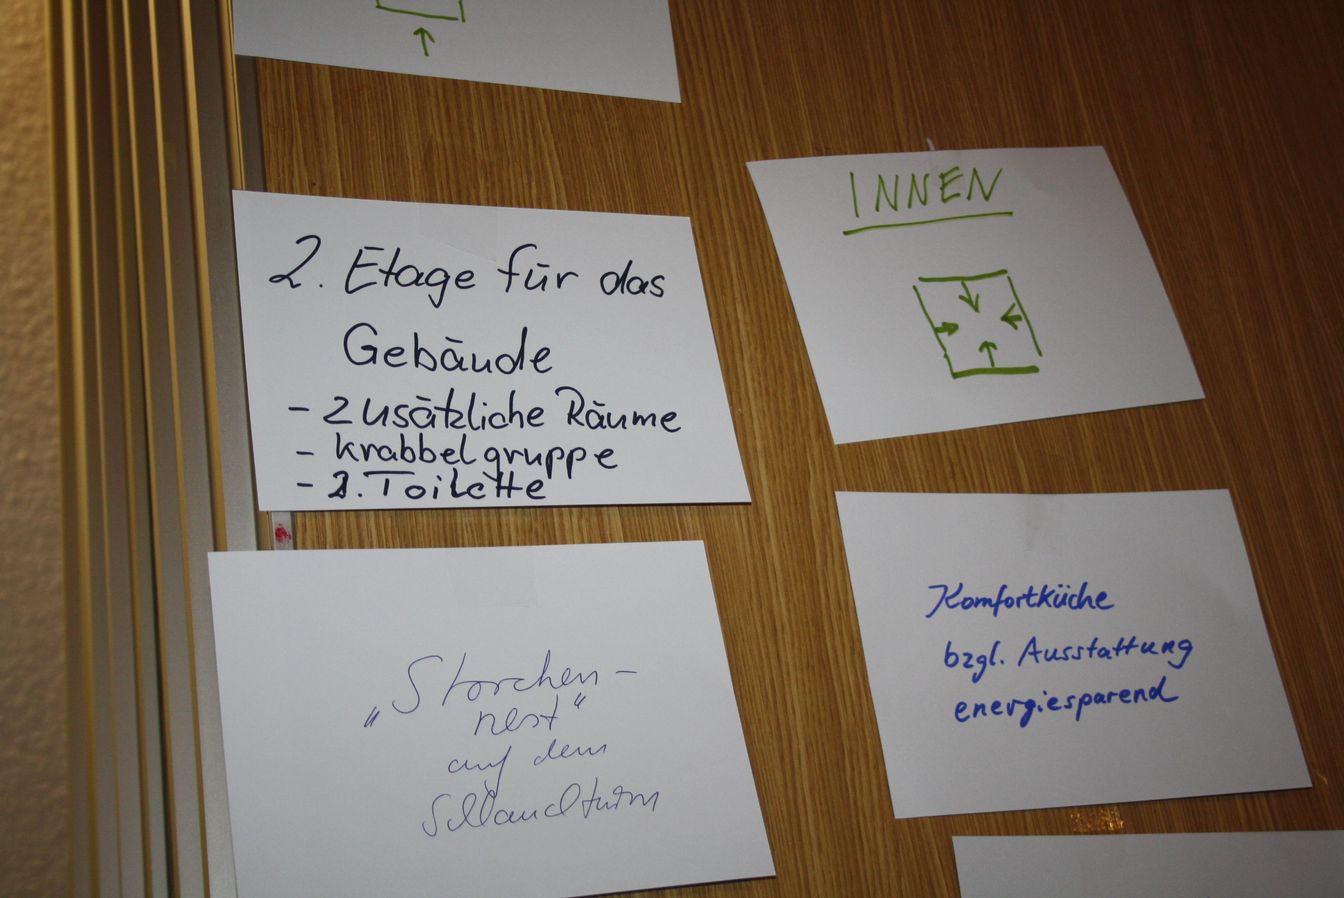 2. Etage für das
Gebäude
- Zusätzliche Räume
- Krabbelgruppe
- 2. Toilette
„Storchen-
nest“
auf dem
Schlauchturm
INNEN
Komfortküche
bzgl. Ausstattung
energiesparend